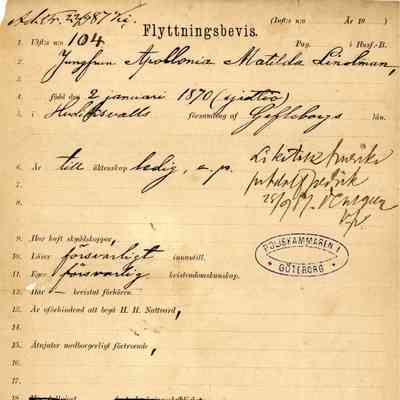 (Inft: n:o År 19 )
Flyttningsbevis.
1. Utfl: n:o 104 Pag. i Husf.-B.
2. Jungfrun Apollonia Matilda Lindman,
3.
4. född den 2 januari 1870 (sjutio)
5. i Hudiksvalls församling af Gefleborgs län.
6. Är till äktenskap ledig, e. p.
7.
8.
9. Har haft skyddskoppor,
10. Läser försvarligt innantill.
11. Eger försvarlig kristendomskunskap.
12. Har — bevistat förhören.
13. Är oförhindrad att begå H. H. Nattvard,
14.
15. Åtnjuter medborgerligt förtroende,
16.
17.
18.
POLISKAMMAREN I
GÖTEBORG